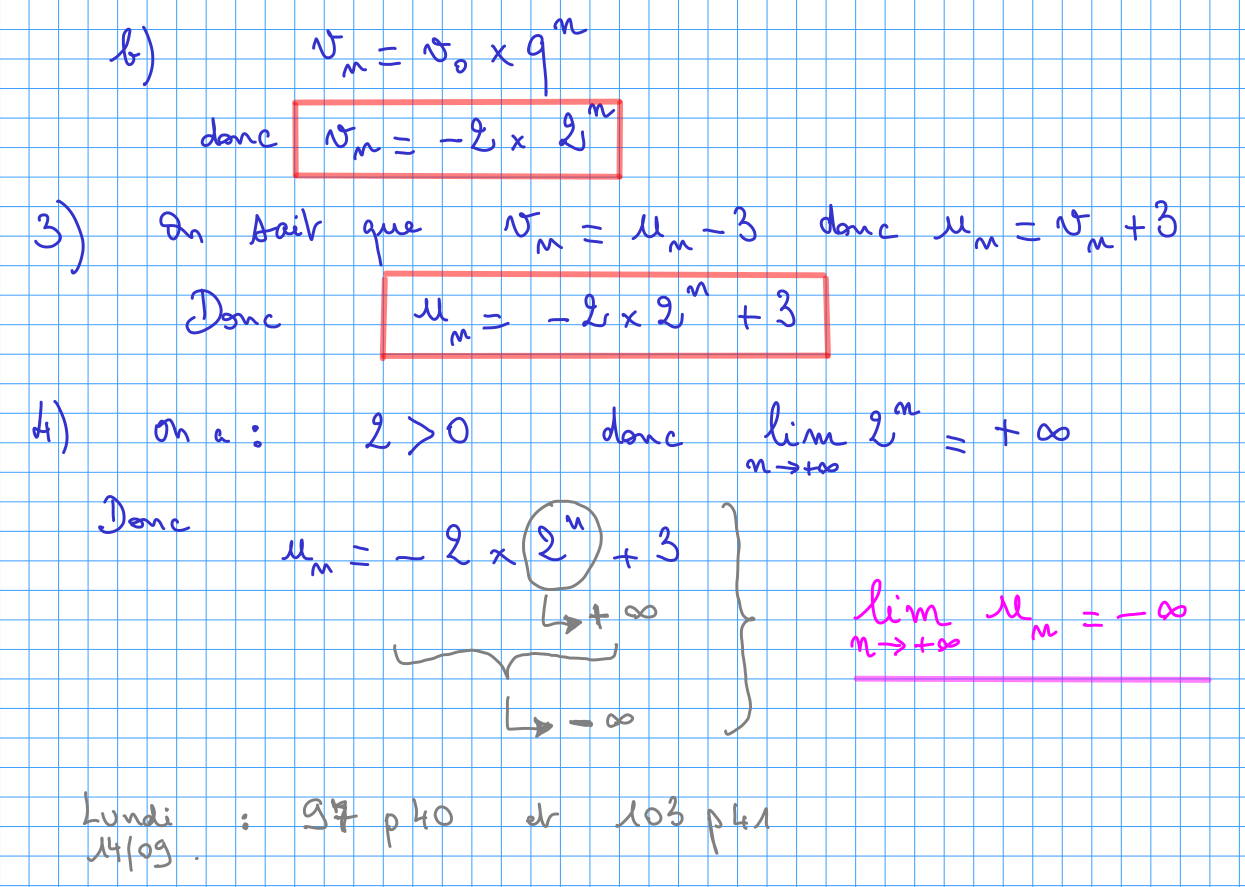 b) vₙ = v₀ × qⁿ
donc vₙ = −2 × 2ⁿ
3) On sait que vₙ = uₙ − 3 donc uₙ = vₙ + 3
Donc uₙ = −2 × 2ⁿ + 3
4) On a : 2 > 0 donc lim 2ⁿ = +∞
n → +∞
Donc
uₙ = −2 × 2ⁿ + 3
→ +∞
lim uₙ = −∞
n → +∞
→ −∞
Lundi : 97 p40 et 103 p41
14/09.